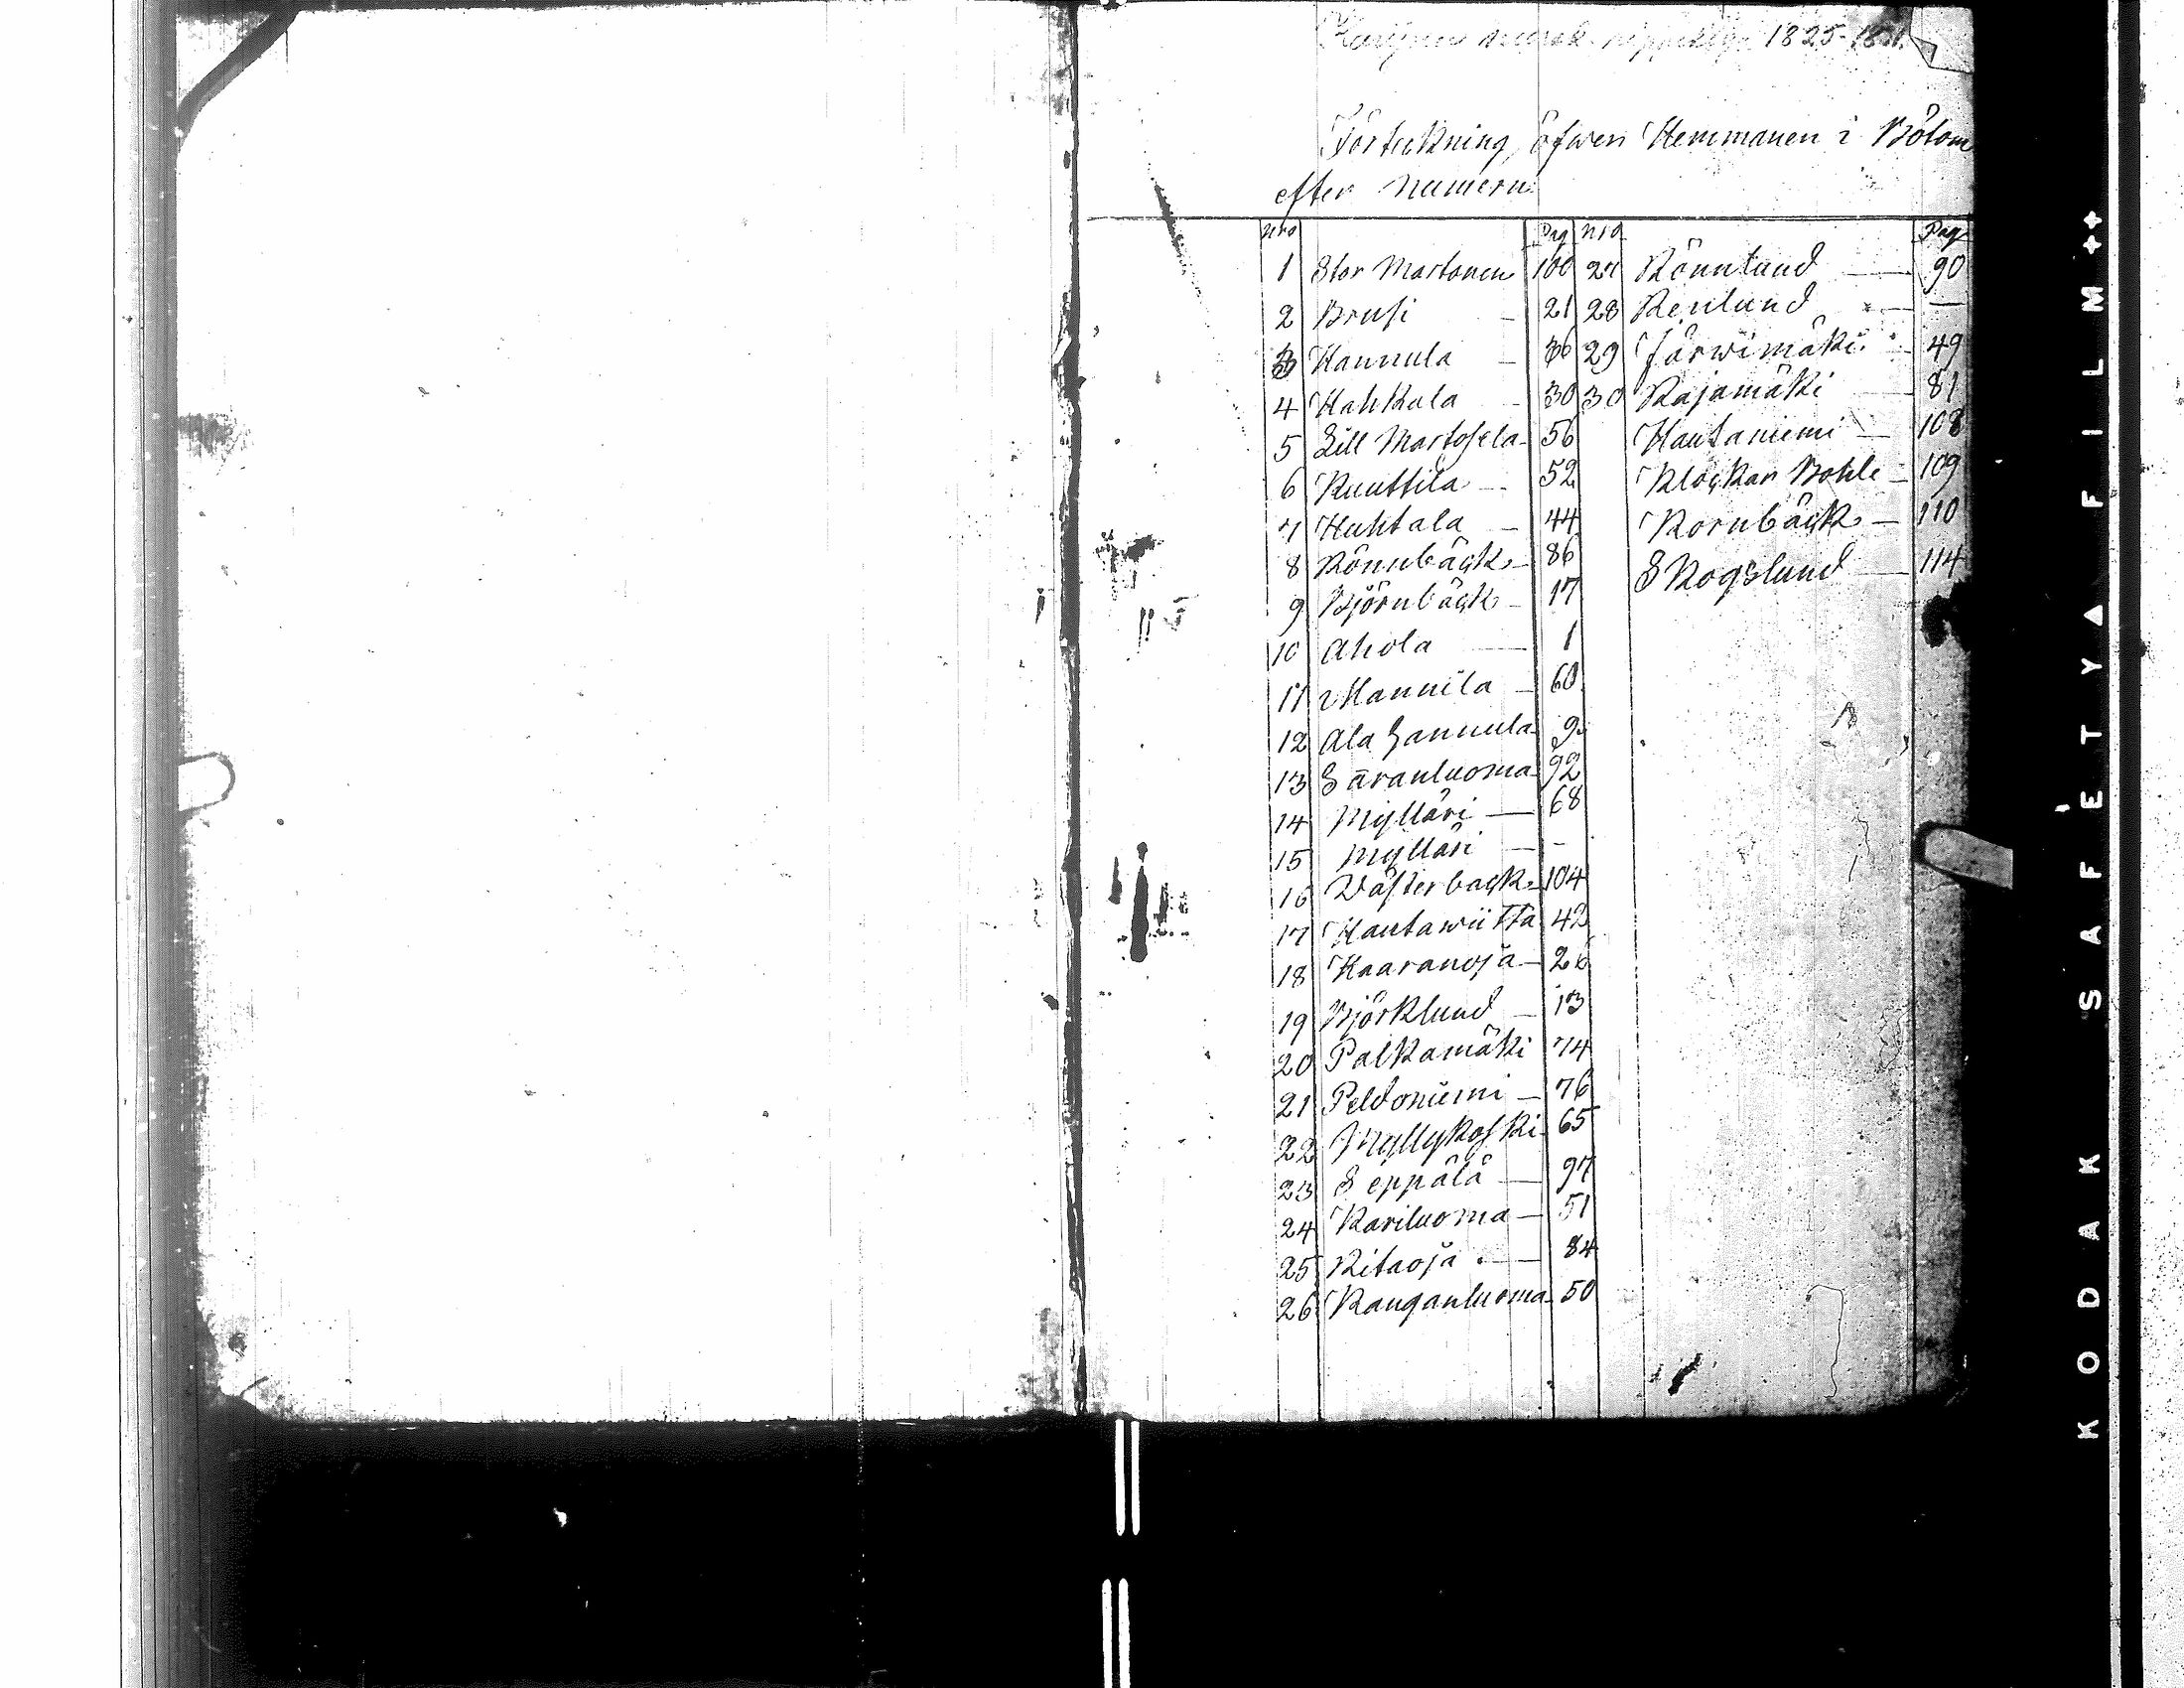 1825-18
Förteckning öfwer Hemmanen i Bötom
efter Numern
Nro Pag Nro Pag
1 Stor Martonen 100 27 Rönnlund — 90
2 Brusi — 21 28 Renlund — —
3 Hannula — 36 29 Järwimäki — 49
4 Hahkala — 30 30 Rajamäki — 81
5 Lill Martosela — 56 Hautaniemi — 108
6 Knuttila — 52 Klockar Bohle — 109
7 Huhtala — 44 Kornbäck — 110
8 Rönnbäck — 86 Skogslund — 114
9 Björnbäck — 17
10 Ahola — 1
11 Mannila — 60
12 Ala Hannula 9
13 Säranluoma 92
14 Mylläri — 68
15 Mylläri — -
16 Wästerback 104
17 Hautawiitta 42
18 Haaranoja — 26
19 Björklund — 13
20 Palkamäki 74
21 Peldoniemi — 76
22 Myllykoski 65
23 Seppälä — 97
24 Kariluoma — 51
25 Ritaoja — 84
26 Kanganluoma 50
KODAK SAFETY FILM